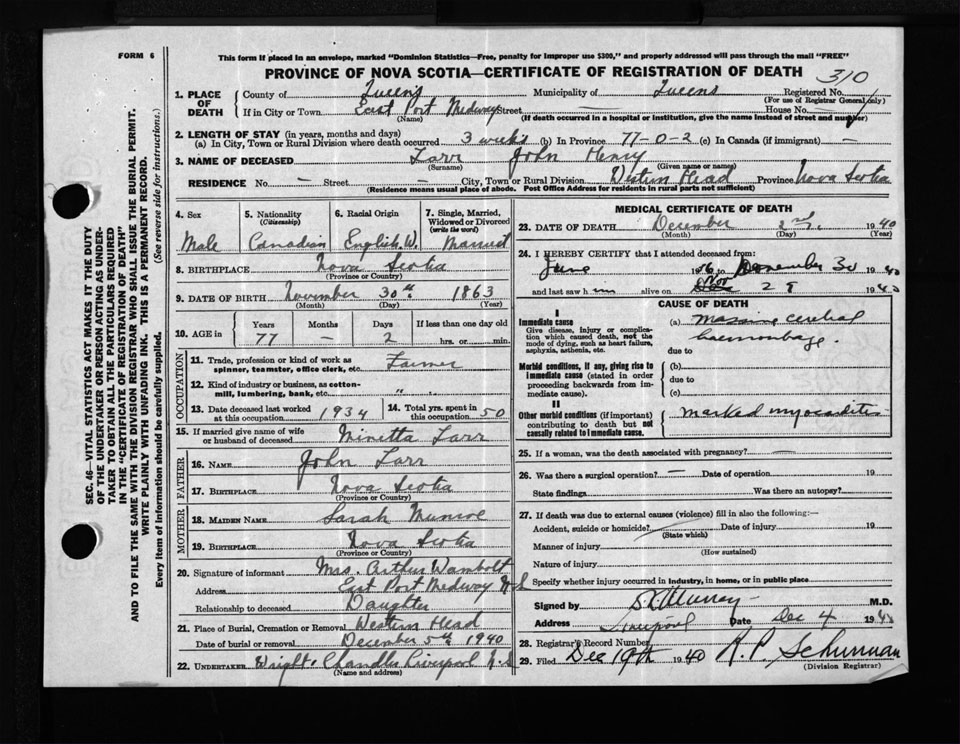 FORM 6
This form if placed in an envelope, marked "Dominion Statistics—Free, penalty for improper use $300," and properly addressed will pass through the mail "FREE"
PROVINCE OF NOVA SCOTIA—CERTIFICATE OF REGISTRATION OF DEATH
310
1. PLACE OF DEATH
County of Queens Municipality of Queens Registered No.
(For use of Registrar General only)
If in City or Town East Port Medway Street — House No.
(Name) (If death occurred in a hospital or institution, give the name instead of street and number)
2. LENGTH OF STAY (in years, months and days)
(a) In City, Town or Rural Division where death occurred 3 weeks (b) In Province 77-0-2 (c) In Canada (if immigrant) —
3. NAME OF DECEASED John Henry
(Surname) (Given name or names)
RESIDENCE No. — Street City, Town or Rural Division Western Head Province Nova Scotia
(Residence means usual place of abode. Post Office Address for residents in rural parts not sufficient)
4. Sex
Male
5. Nationality
(Citizenship)
Canadian
6. Racial Origin
English. W.
7. Single, Married, Widowed or Divorced
(write the word)
Married
8. BIRTHPLACE Nova Scotia
(Province or Country)
9. DATE OF BIRTH November 30th 1863
(Month) (Day) (Year)
10. AGE in
Years Months Days If less than one day old
77 — 2 hrs. or min.
OCCUPATION
11. Trade, profession or kind of work as spinner, teamster, office clerk, etc. Farmer
12. Kind of industry or business, as cotton-mill, lumbering, bank, etc. "
13. Date deceased last worked at this occupation 1934
14. Total yrs. spent in this occupation 50
15. If married give name of wife or husband of deceased Minetta
FATHER
16. NAME John
17. BIRTHPLACE Nova Scotia
(Province or Country)
MOTHER
18. MAIDEN NAME Sarah Munroe
19. BIRTHPLACE Nova Scotia
(Province or Country)
20. Signature of informant Mrs. Arthur Wambolt
Address East Port Medway N.S
Relationship to deceased Daughter
21. Place of Burial, Cremation or Removal Western Head
Date of burial or removal December 5th 1940
22. UNDERTAKER Wright. Chandler Liverpool N.S
(Name and address)
MEDICAL CERTIFICATE OF DEATH
23. DATE OF DEATH December 2nd. 1940
(Month) (Day) (Year)
24. I HEREBY CERTIFY that I attended deceased from:
June 19 to November 30 1940
and last saw him alive on Nov 28 1940
CAUSE OF DEATH
I
Immediate cause
Give disease, injury or complication which caused death, not the mode of dying, such as heart failure, asphyxia, asthenia, etc.
(a) massive cerebral
haemorrhage.
due to
Morbid conditions, if any, giving rise to immediate cause (stated in order proceeding backwards from immediate cause).
(b)
due to
(c)
II
Other morbid conditions (if important) contributing to death but not causally related to immediate cause.
marked myocarditis
25. If a woman, was the death associated with pregnancy? —
26. Was there a surgical operation? — Date of operation 19
State findings Was there an autopsy?
27. If death was due to external causes (violence) fill in also the following:—
Accident, suicide or homicide? Date of injury 19
(State which)
Manner of injury
(How sustained)
Nature of injury
Specify whether injury occurred in industry, in home, or in public place
Signed by Murray M.D.
Address Liverpool Date Dec 4 1940
28. Registrar's Record Number
29. Filed Dec 19th 1940 R.P. Schurman
(Division Registrar)
SEC. 46—VITAL STATISTICS ACT MAKES IT THE DUTY
OF THE UNDERTAKER OR PERSON ACTING AS UNDER-
TAKER TO OBTAIN ALL THE PARTICULARS REQUIRED
IN THE "CERTIFICATE OF REGISTRATION OF DEATH"
AND TO FILE THE SAME WITH THE DIVISION REGISTRAR WHO SHALL ISSUE THE BURIAL PERMIT.
WRITE PLAINLY WITH UNFADING INK. THIS IS A PERMANENT RECORD.
Every item of information should be carefully supplied. (See reverse side for instructions.)